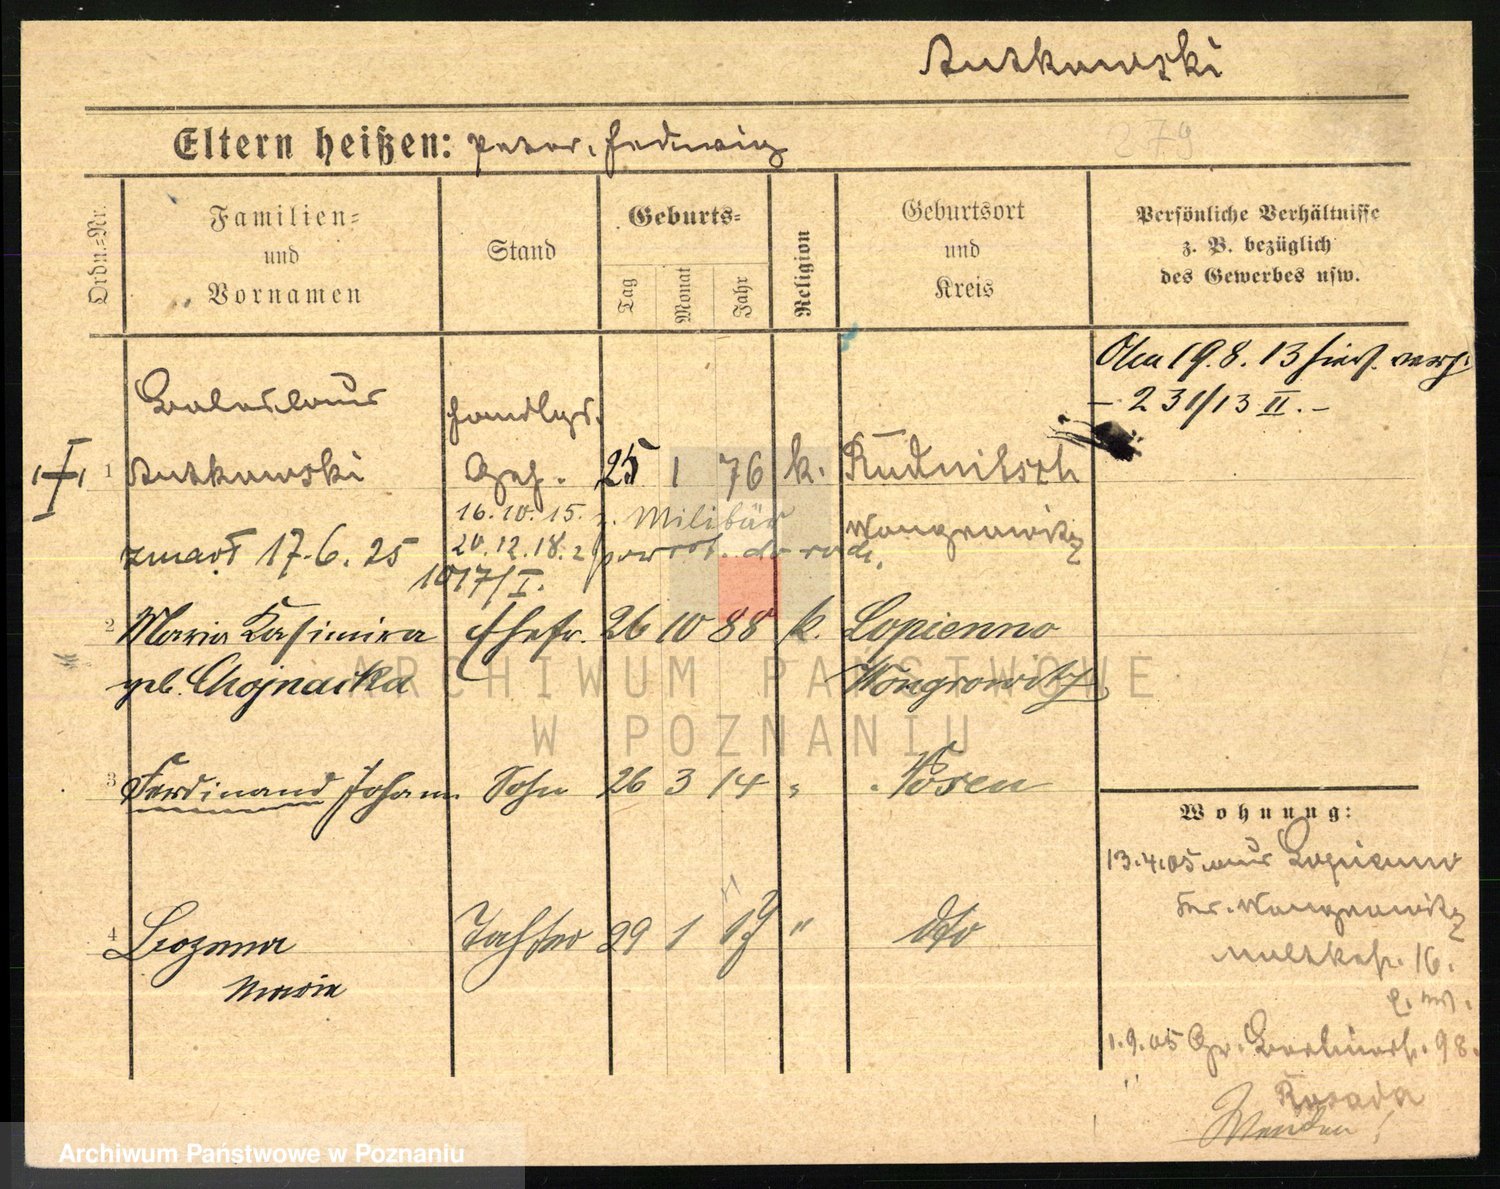 Rutkowski
Eltern heißen: Peter, Hedwig
279
Ordn.=Nr.
Familien=
und
Vornamen
Stand
Geburts=
Tag
Monat
Jahr
Religion
Geburtsort
und
Kreis
Persönliche Verhältnisse
z. B. bezüglich
des Gewerbes usw.
Am 19.8.13 hier verh.
- 231/13 II. -
Boleslaus Handlgs.
1 Rutkowski Geh. 25 1 76 k. Rudnitsch
16.10.15. z. Militär Wongrowitz
zmarł 17.6.25 20.12.18. z powrot. do rodz.
1017/I.
2 Maria Kasimira Ehefr. 26 10 88 k. Lopienno
geb. Chojnacka Wongrowitz
3 Ferdinand Johann Sohn 26 3 14 " Posen
4 Bozena Tochter 29 1 19 " dto
Maria
Wohnung:
13.4.05. aus Lopienno
Kr. Wongrowitz
Moltkestr. 16.
1.9.05 Gr. Berlinerstr. 98.
Wenden!
ARCHIWUM PAŃSTWOWE
W POZNANIU
Archiwum Państwowe w Poznaniu